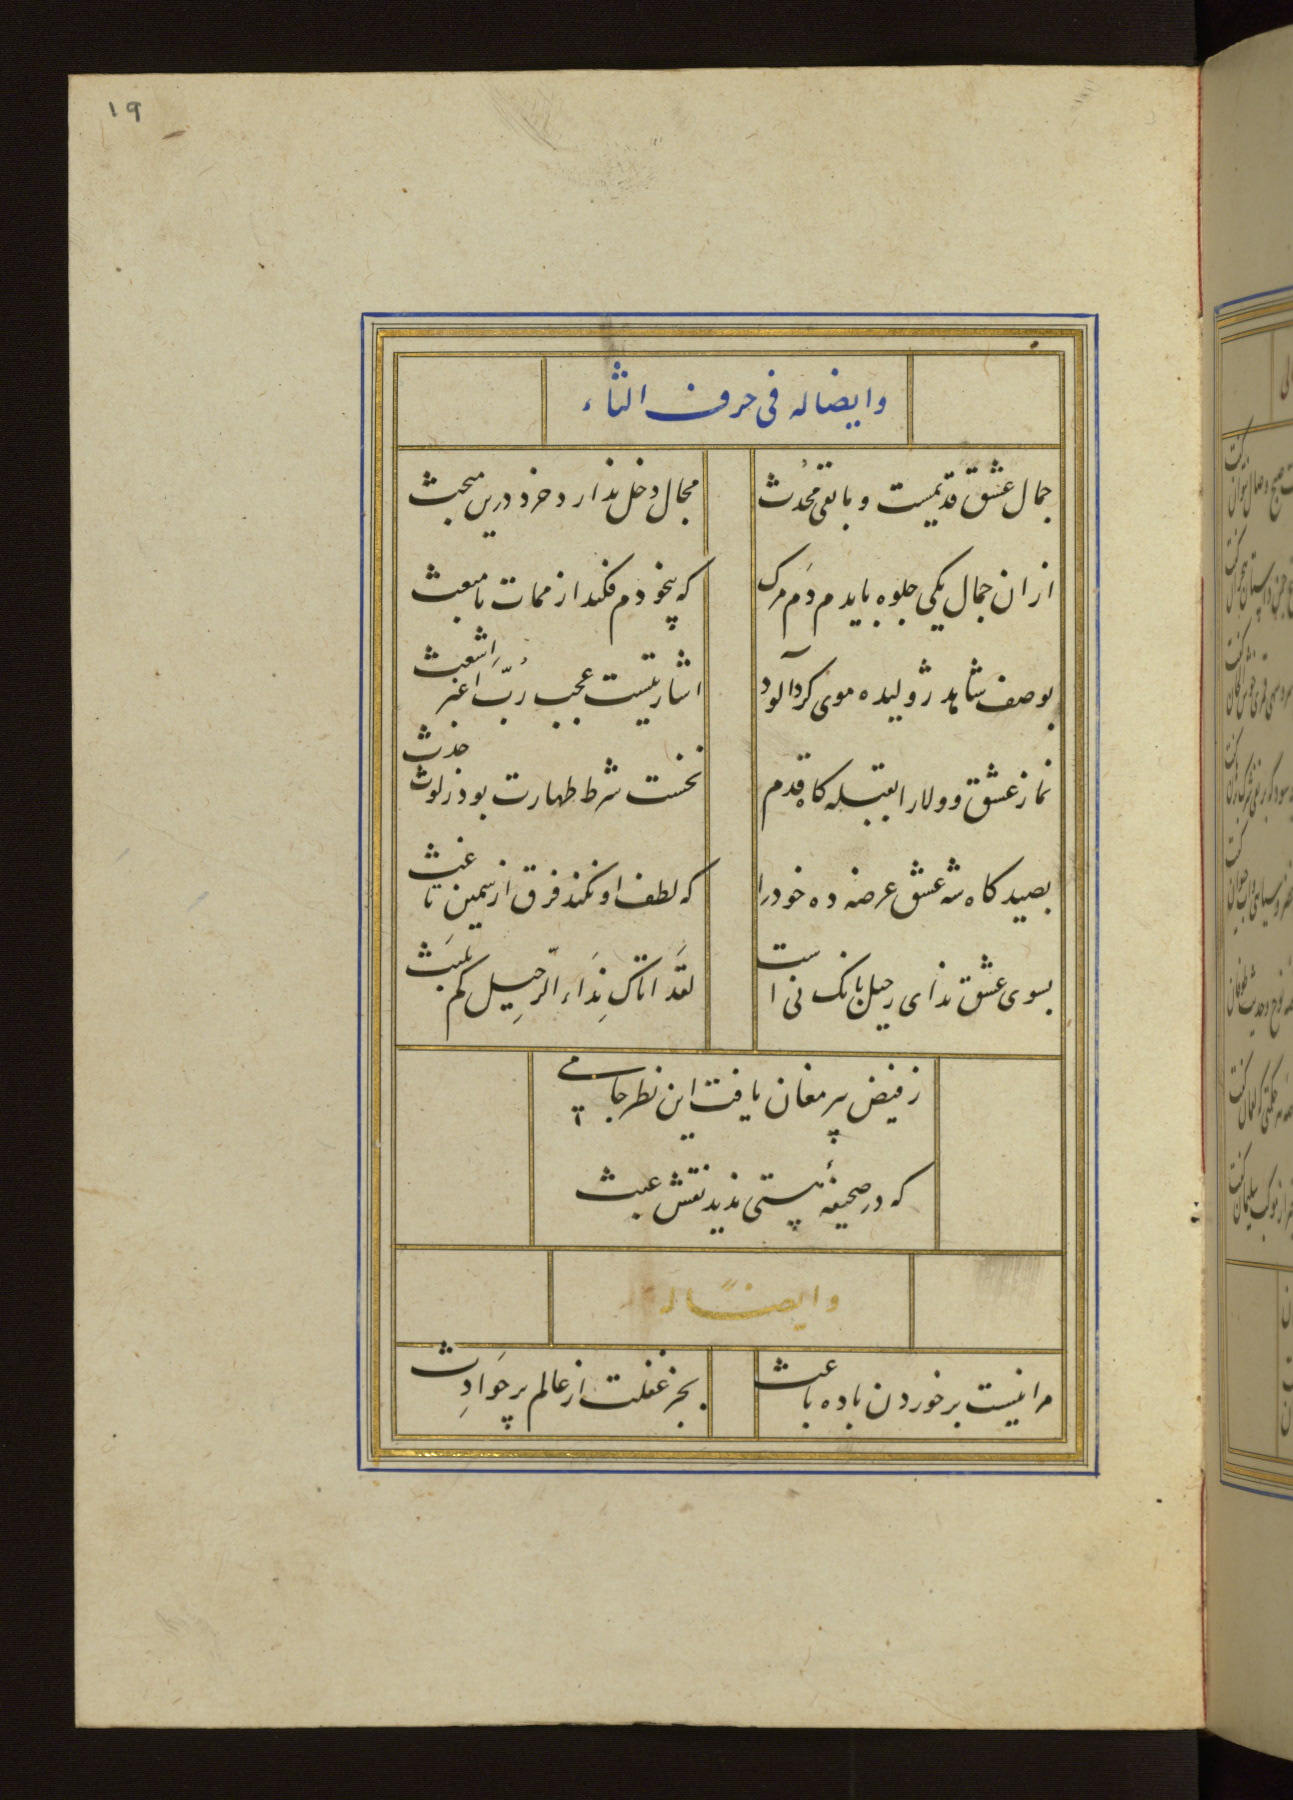 ۱۹
وایضا له فی حرف الثاء
جمال عشق قدیمست و باقی مُحدَث
مجال دخل ندارد خرد درین مبحث
ازان جمال یکی جلوه بایدم دَم مرک
که بیخودم فکند از ممات تا مبعث
بوصف شاهد ژولیده موی کردآلود
اشارتیست عجب رُبّ اغبر اشعث
نماز عشق و ولا را بقبله کاه قدم
نخست شرط طهارت بود ز لوث حدث
بصید کاه شه عشق عرضه ده خود را
که لطف او نکند فرق از سمین تا غث
بسوی عشق ندای رحیل بانک نی است
لَقَد اتاک نِدَاء الرّحِیل کم تلبَث
ز فیض پیر مغان یافت این نظر جامی
که در صحیفهٔ هستی ندید نقش عبث
وایضًا له
مرا نیست بر خوردن باده باعث
بجز غفلت از عالم پر حَوَادِث